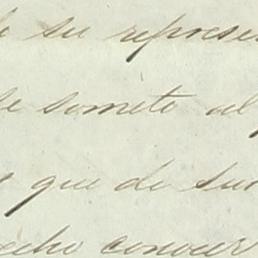 de su represen
se somete al
que de su
echo conocer